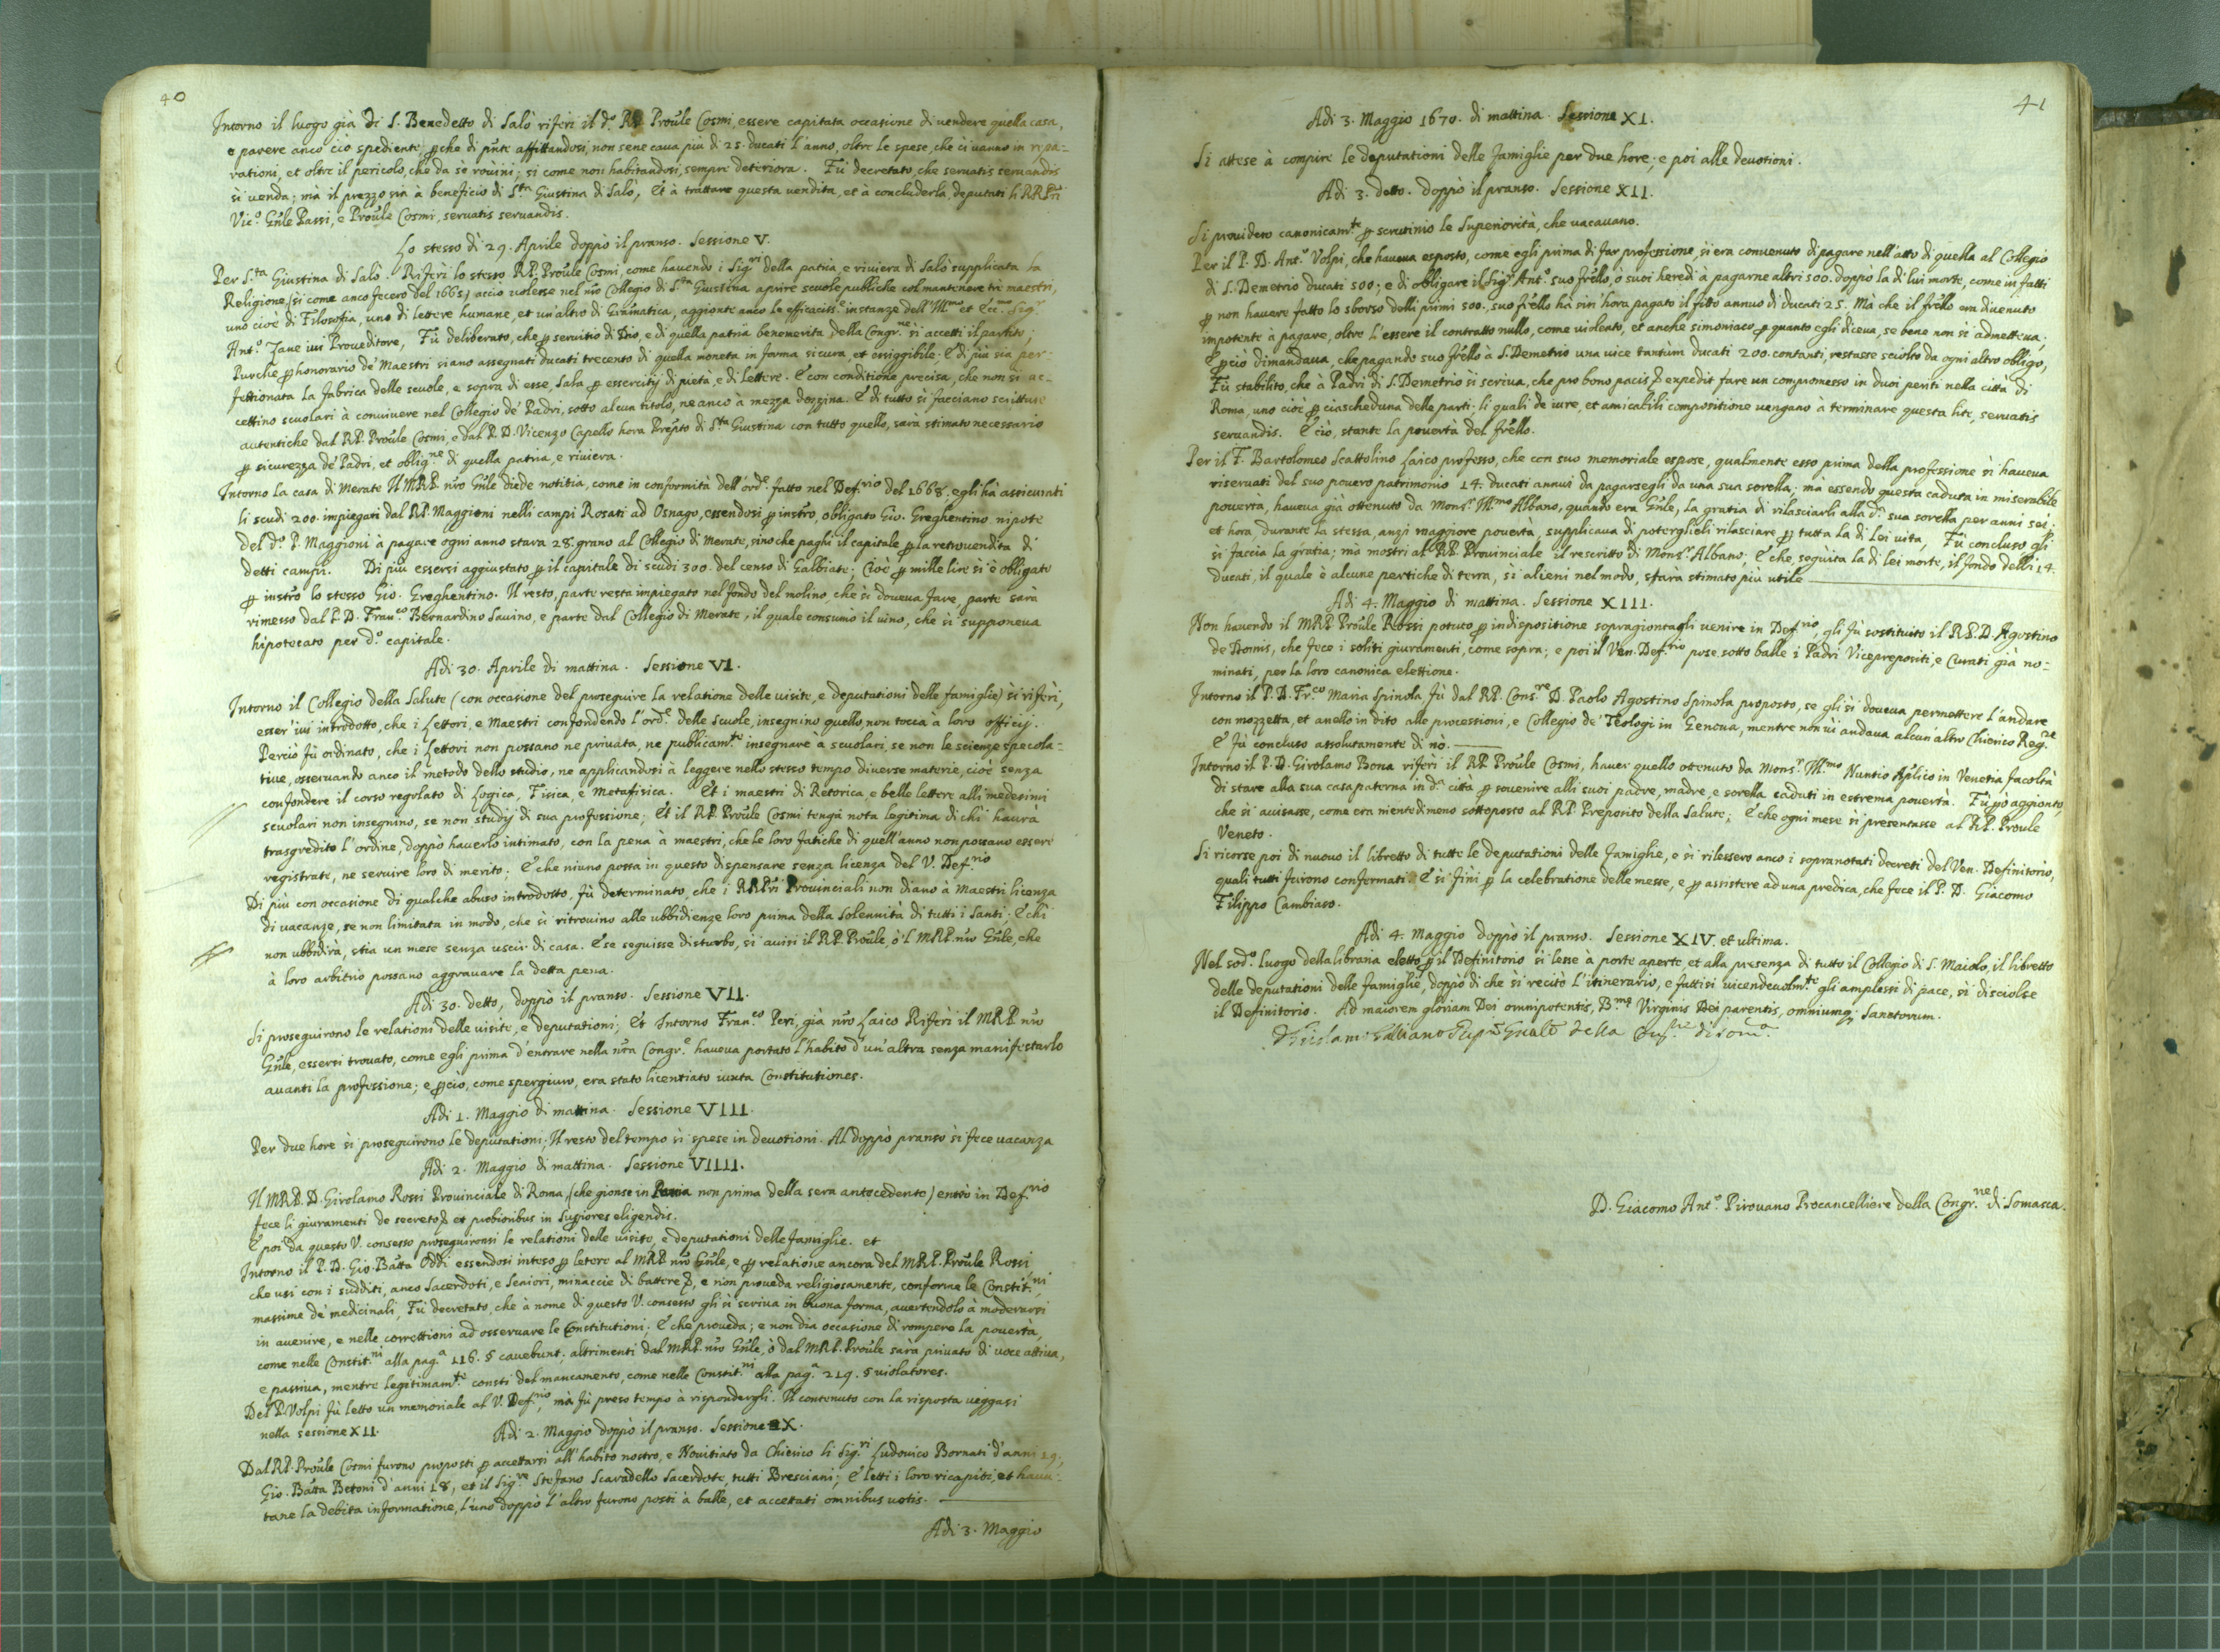 40
Intorno il luogo già di S. Benedetto di Salò riferì il d.º RP. Proũle Cosmi, essere capitata occasione di vendere quella casa,
e parere anco ciò spediente; ꝑche di p̃nte affittandosi, non se ne caua più di 25. ducati l'anno, oltre le spese, che ci uanno in ripa-
rationi, et oltre il pericolo, che da sè rouini; si come non habitandosi, sempre deteriora. Fù decretato, che seruatis seruandis
si venda; mà il prezzo sia à beneficio di S.ta Giustina di Salò, Et à trattare questa vendita, et à concluderla, deputati li RRPri
Vic.º Gñle Passi, e Proũle Cosmi, seruatis seruandis.
Lo stesso dì 29. Aprile doppò il pranso. Sessione V.
Per S.ta Giustina di Salò. Riferì lo stesso RP. Proũle Cosmi, come hauendo i Sig.ri della patria, e riuiera di Salò supplicata la
Religione (si come anco fecero del 1665) acciò uolesse nel nr̃o Collegio di S.ta Giustina aprire scuole publiche col mantenere trè maestri,
uno cioè di Filosofia, uno di lettere humane, et un'altro di Gramatica, aggionte anco le efficaciss.e instanze dell'Ill.mo et Ecc.mo Sig.r
Ant.º Zane iui Proueditore, Fù deliberato, che ꝑ seruitio di Dio, e di quella patria benemerita della Congr.ne si accetti il partito;
Purche ꝑ honorario de' Maestri siano assegnati ducati trecento di quella moneta in forma sicura, et esiggibile; E di più sia per-
fettionata la fabrica delle scuole, e sopra di esse, Sala ꝑ essercitij di pietà, e di Lettere. E con conditione precisa, che non si ac-
cettino scuolari à conuiuere nel Collegio de' Padri, sotto alcun titolo, ne anco à mezza dozzina. E di tutto si facciano scritture
autentiche dal RP. Proũle Cosmi, e dal P. D. Vicenzo Capello hora Prep.to di S.ta Giustina con tutto quello, sarà stimato necessario
ꝑ sicurezza de' Padri, et oblig.ne di quella patria, e riuiera.
Intorno la casa di Merate Il MRP. nr̃o Gñle diede notitia, come in conformità dell'ord.e fatto nel Def.rio del 1668. egli hà assicurati
li scudi 200. impiegati dal RP. Maggioni nelli campi Rosati ad Osnago, essendosi ꝑ instr̃o, obligato Gio. Greghentino nipote
del d.º P. Maggioni à pagare ogni anno stara 28. grano al Collegio di Merate, sino che paghi il capitale ꝑ la retrouendita di
detti campi. Di più essersi aggiustato ꝑ il capitale di scudi 300. del censo di Galbiate: Cioè ꝑ mille lire si è obligato
ꝑ instr̃o lo stesso Gio. Greghentino. Il resto, parte resta impiegato nel fondo del molino, che si doueua fare, parte sarà
rimesso dal P. D. Fran.co Bernardino Sauino, e parte dal Collegio di Merate, il quale consumò il uino, che si supponeua
hipotecato per d.º capitale.
Adi 30. Aprile di mattina. Sessione VI.
Intorno il Collegio della Salute (con occasione del proseguire la relatione delle visite, e deputationi delle famiglie) si riferì,
esser' iui introdotto, che i Lettori, e Maestri confondendo l'ord.e delle scuole, insegnino quello, non tocca à loro officij.
Perciò fù ordinato, che i Lettori non possano ne priuata, ne publicam.te insegnare à scuolari, se non le scienze specola-
tiue, osseruando anco il metodo dello studio, ne applicandosi à leggere nello stesso tempo diuerse materie, cioè senza
confondere il corso regolato di Logica, Fisica, e Metafisica. Et i maestri di Retorica, e belle lettere alli medesimi
scuolari non insegnino, se non studij di sua professione; Et il RP. Proũle Cosmi tenga nota legitima di chi haurà
trasgredito l'ordine, doppò hauerlo intimato, con la pena à maestri, che le loro fatiche di quell'anno non possano essere
registrate, ne seruire loro di merito; E che niuno possa in questo dispensare senza licenza del V. Def.rio
Di più con occasione di qualche abuso introdotto, fù determinato, che i RRPri Prouinciali non diano à Maestri licenza
di vacanze, se non limitata in modo, che si ritrouino alle ubbidienze loro prima della Solennità di tutti i Santi; E chi
non ubbidirà, stia un mese senza uscir di casa. E se seguisse disturbo, si auisi il RP. Proũle, ò 'l MRP. nr̃o Gñle, che
à loro arbitrio possano aggrauare la detta pena.
Adi 30. detto, doppò il pranso. Sessione VII.
Si proseguirono le relationi delle visite, e deputationi; Et Intorno Fran.co Peri, già nr̃o Laico Riferì il MRP. nr̃o
Gñle, essersi trouato, come egli prima d'entrare nella nr̃a Congr.e haueua portato l'habito d'un'altra senza manifestarlo
auanti la professione; e ꝑciò, come spergiuro, era stato licentiato iuxta Constitutiones.
Adi 1. Maggio di mattina. Sessione VIII.
Per due hore si proseguirono le deputationi; Il resto del tempo si spese in deuotioni. Al doppò pranso si fece uacanza
Adi 2. Maggio di mattina. Sessione VIIII.
Il MRP. D. Girolamo Rossi Prouinciale di Roma, (che gionse in Pauia non prima della sera antecedente) entrò in Def.rio
fece li giuramenti de secreto, et probioribus in Sup̃iores eligendis.
E poi da questo V. consesso proseguironsi le relationi delle visite, e deputationi delle famiglie. et
Intorno il P. D. Gio. Batta Oddi essendosi inteso ꝑ lettere al MRP. nr̃o Gñle, e ꝑ relatione ancora del MRP. Proũle Rossi,
che usi con i sudditi, anco Sacerdoti, e Seniori, minaccie di battere, e non proueda religiosamente, conforme le Constit.ni,
massime de' medicinali, Fù decretato, che à nome di questo V. consesso gli si scriua in buona forma, auertendolo à moderarsi
in auenire, e nelle correttioni ad osseruare le Constitutioni; E che proueda; e non dia occasione di rompere la pouertà,
come nelle Constit.ni alla pag.a 116. § cauebunt; altrimenti dal MRP. nr̃o Gñle, ò dal MRP. Proũle sarà priuato di uoce attiua,
e passiua, mentre legitimam.te consti del mancamento, come nelle Constit.ni alla pag.a 219. § uiolatores.
Del P. Volpi fù letto un memoriale al V. Def.rio, mà fù preso tempo à rispondergli. Il contenuto con la risposta ueggasi
nella sessione XII.
Adi 2. Maggio doppò il pranso. Sessione X.
Dal RP. Proũle Cosmi furono proposti ꝑ accettarsi all'habito nostro, e Nouitiato da Chierico li Sig.ri Ludouico Bornati d'anni 19,
Gio. Batta Betoni d'anni 18, et il Sig.re Stefano Scaradello Sacerdote, tutti Bresciani; E letti i loro ricapiti, et hauu-
tane la debita informatione, l'uno doppò l'altro furono posti à balle, et accettati omnibus uotis.
Adi 3. Maggio
41
Adi 3. Maggio 1670. di mattina. Sessione XI.
Si attese à compire le deputationi delle famiglie per due hore; e poi alle deuotioni.
Adi 3. detto. doppò il pranso. Sessione XII.
Si prouidero canonicam.te ꝑ scrutinio le Superiorità, che uacauano.
Per il P. D. Ant.º Volpi, che haueua esposto, come egli prima di far professione, si era conuenuto di pagare nell'atto di quella al Collegio
di S. Demetrio ducati 500; e di obligare il Sig.r Ant.º suo fr̃ello, ò suoi heredi à pagarne altri 500. doppò la di lui morte, come in fatti
ꝑ non hauere fatto lo sborso delli primi 500. suo fr̃ello hà sin' hora pagato il fitto annuo di ducati 25. Mà che il fr̃ello era diuenuto
impotente à pagare, oltre l'essere il contratto nullo, come uiolento, et anche simoniaco, ꝑ quanto egli diceua, se bene non si admetteua;
ꝑciò dimandaua, che pagando suo fr̃ello à S. Demetrio una uice tantùm ducati 200. contanti, restasse sciolto da ogni altro obligo,
Fù stabilito, che à Padri di S. Demetrio si scriua, che pro bono pacis expedit fare un compromesso in duoi periti nella città di
Roma, uno cioè ꝑ ciascheduna delle parti; li quali de iure, et amicabili compositione uengano à terminare questa lite, seruatis
seruandis. E ciò, stante la pouertà del fr̃ello.
Per il F. Bartolomeo Scattolino Laico professo, che con suo memoriale espose, qualmente esso prima della professione si haueua
riseruati del suo pouero patrimonio 14. ducati annui da pagarsegli da una sua sorella; mà essendo questa caduta in miserabile
pouertà, haueua già ottenuto da Mons.r Ill.mo Albano, quando era Gñle, la gratia di rilasciarli alla d.a sua sorella per anni sei;
et hora, durante la stessa, anzi maggiore pouertà, supplicaua di poterglieli rilasciare ꝑ tutta la di Lei uita, Fù concluso gli
si faccia la gratia; ma mostri al RP. Prouinciale il rescritto di Mons.r Albano; E che, seguita la di lei morte, il fondo delli 14.
ducati, il quale è alcune pertiche di terra, si alieni nel modo, sarà stimato più utile
Adi 4. Maggio di mattina. Sessione XIII.
Non hauendo il MRP. Proũle Rossi potuto ꝑ indispositione sopragiontagli uenire in Def.rio, gli fù sostituito il RP. D. Agostino
de Bonis, che fece i soliti giuramenti, come sopra; e poi il Ven. Def.rio pose sotto balle i Padri Viceprepositi, e Curati già no-
minati, per la loro canonica elettione.
Intorno il P. D. Fr.co Maria Spinola fù dal RP. Cons.re D. Paolo Agostino Spinola proposto, se gli si doueua permettere l'andare
con mozzetta, et anello in dito alle processioni, e Collegio de' Teologi in Genoua, mentre non ui andaua alcun'altro Chierico Reg.re
E fù concluso assolutamente di nò.
Intorno il P. D. Girolamo Bona riferì il RP. Proũle Cosmi, hauer quello ottenuto da Mons.r Ill.mo Nuntio Ap̃lico in Venetia facoltà
di stare alla sua casa paterna in d.a città ꝑ souenire alli suoi padre, madre, e sorella caduti in estrema pouertà. Fù ꝑò aggionto,
che si auisasse, come era nientedimeno sottoposto al RP. Preposito della Salute; E che ogni mese si presentasse al RP. Proũle
Veneto.
Si ricorse poi di nuouo il libretto di tutte le deputationi delle famiglie, e si rilessero anco i sopranotati decreti del Ven. Definitorio,
quali tutti furono confermati. E si finì ꝑ la celebratione delle messe, e ꝑ assistere ad una predica, che fece il P. D. Giacomo
Filippo Cambiaso.
Adi 4. Maggio doppò il pranso. Sessione XIV. et ultima.
Nel sod.º luogo della libraria eletto ꝑ il Definitorio si lesse à porte aperte, et alla presenza di tutto il Collegio di S. Maiolo, il libretto
delle deputationi delle famiglie, doppò di che si recitò l'itinerario, e fattisi uicendeuolm.te gli amplessi di pace, si disciolse
il Definitorio. Ad maiorem gloriam Dei omnipotentis, B.mæ Virginis Dei parentis, omniumq; Sanctorum.
D. Giacomo Ant.º Pirouano Procancelliere della Congr.ne di Somasca.